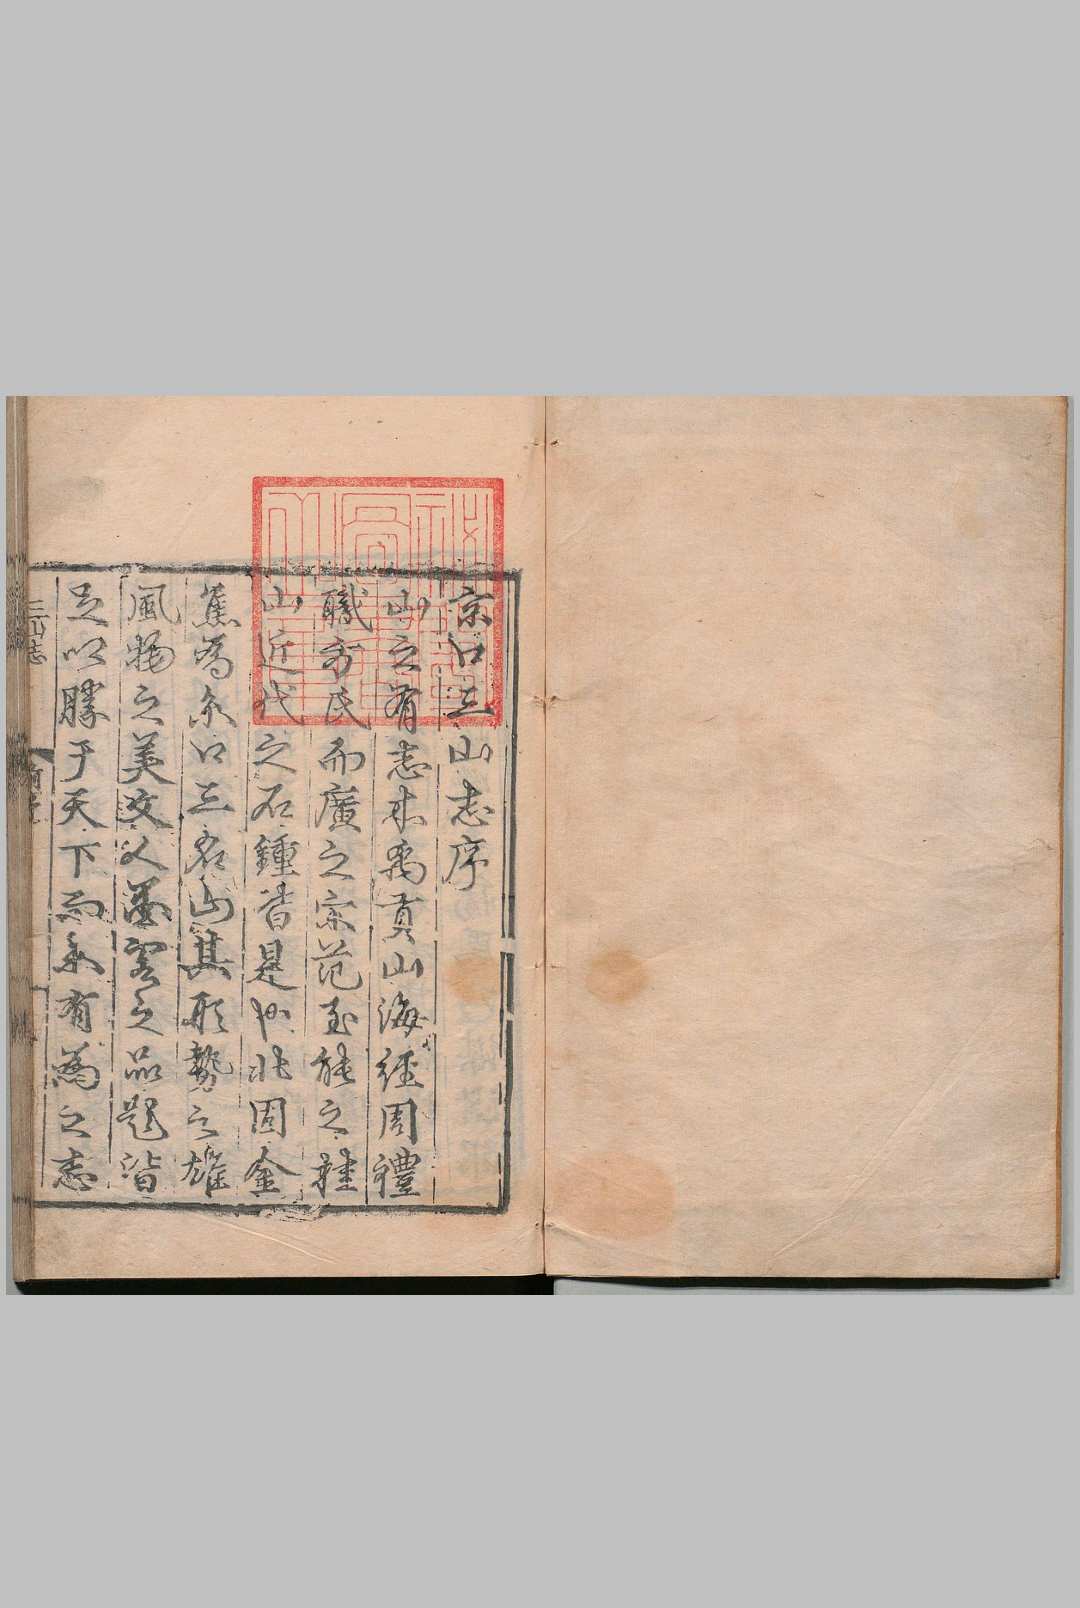 京口三山志序
山之有志本禹貢山海經周禮
職方氏而廣之宋范至能之桂
山近代之石鍾皆是也北固金
蕉為京口三名山其形勢之雄
風物之美文人墨客之品題皆
足以勝于天下而未有為之志
三山志